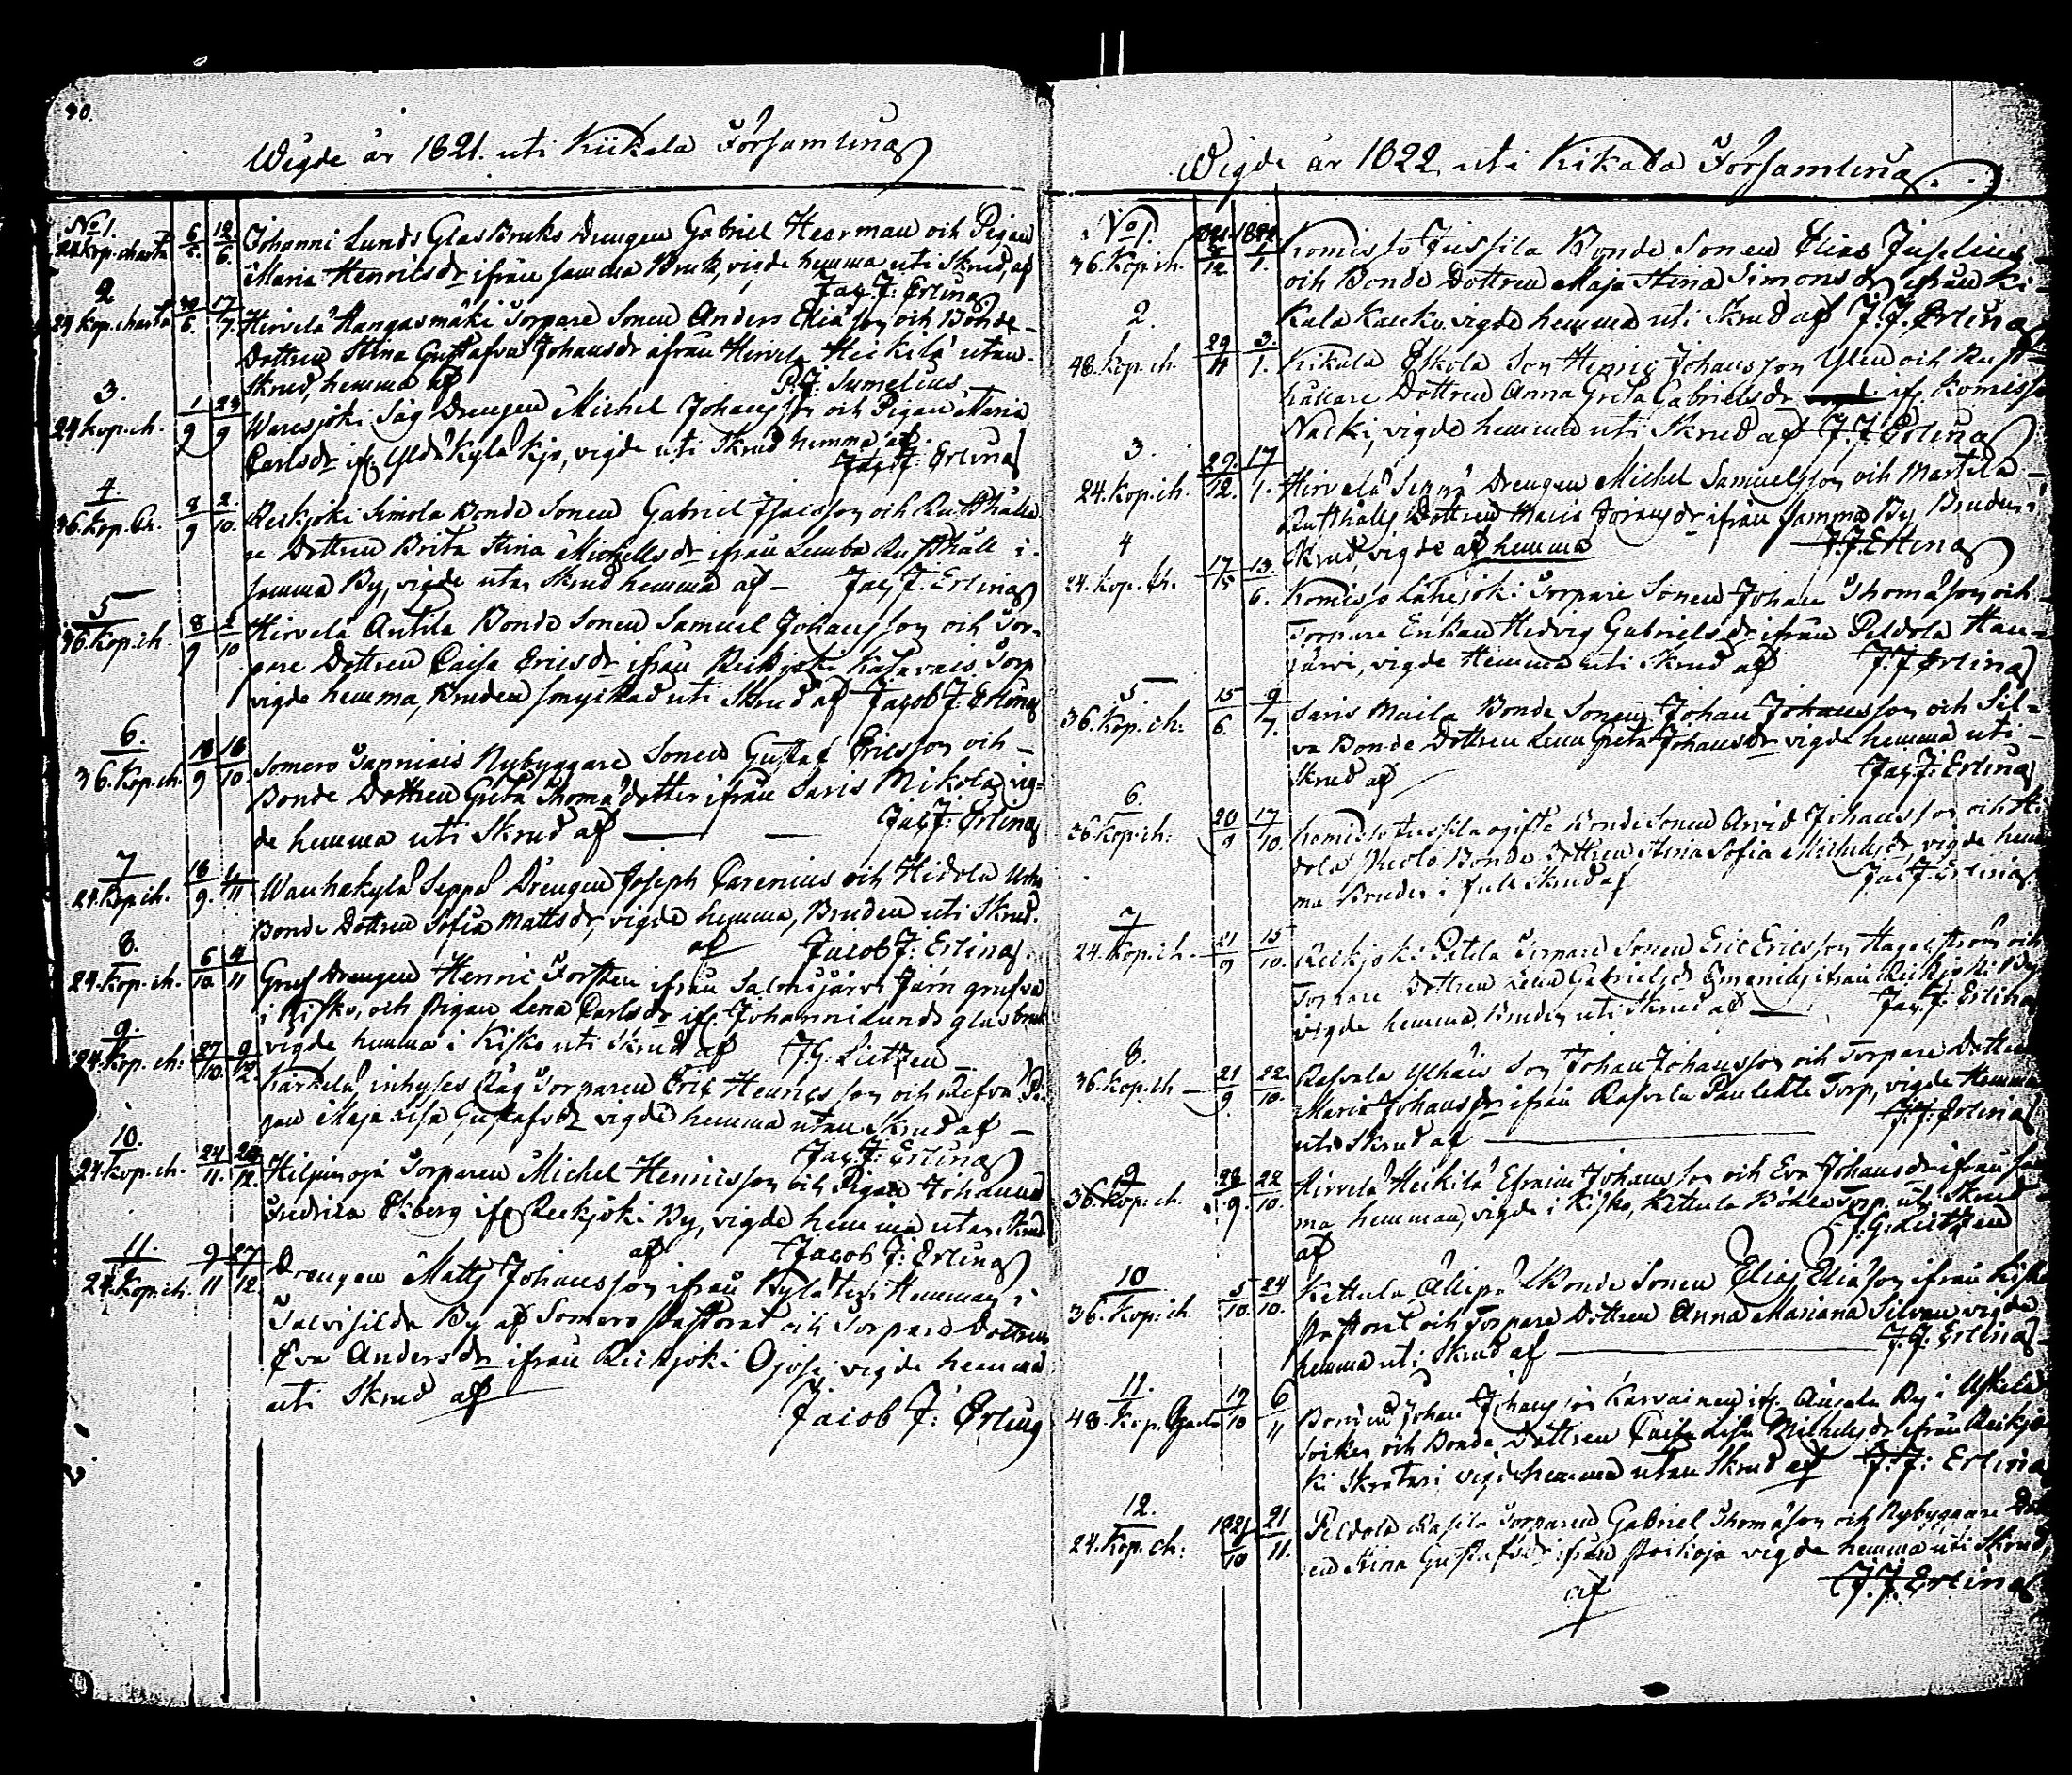 40.
Wigde år 1821. uti Kiikala Församling
No 1. 6/5. 12/6. Johanni Lunds GlasBruks Drengen Gabriel Heerman och Pigan
24 kop. charta Maria Henricsdr ifrån samma Bruk, vigde hemma uti Skrud, af
Jac. J: Erling
2 30/6. 17/7. Hirvelä Kangasmäki Torpare Sonen Anders Eliasson och Bonde
24 kop. charta Dottren Stina Gustafva Johansdr ifrån Hirvelä Heikilä utan
Skrud, hemma af P. J. Sumelius
3. 1/9 23/9 Waresjoki Såg Drengen Michel Johansson och Pigan Maria
24 kop. ch. Carlsdr ifr. Kylä Kjo, vigde uti Skrud hemma af
Jac. J: Erling
4. 8/9 2/10. Rekjoki Simola Bonde Sonen Gabriel Isacsson och Rusthålla
36. kop. Ch. re Dottren Brita Stina Michelsdr ifrån Lemba Rusthåll i
samma By, vigde utan Skrud hemma af – Jac J. Erling
5 8/9 2/10 Hirvelä Antila Bonde Sonen Samuel Johansson och Tor-
36. kop. ch. pare Dottren Caisa Ericsdr ifrån Reikjoki Torp
vigde hemma, Bruden uti Skrud af Jacob J. Erling
6. 18/9 16/10. Somero Bonde Sonen Gustaf Ericsson och –
36. kop. ch. Bonde Dottren Greta Thomædotter ifrån Saris Mikola, vig-
de hemma uti Skrud af — — Jac J: Erling
7 16/9. 1/11 Wauhakylä Seppä Drengen Joseph Carenius och Hidola
24. kop. ch. Bonde Dottren Sofia Mattsdr, vigde hemma, Bruden uti Skrud.
af Jacob J. Erling
8. 6/10. 4/11 Gruf Drengen Henric Forsten ifrån Salonsjärvi Järn grufva
24. kop. ch. i Kisko, och Pigan Lena Carlsdr ifr. Johannilunds glasbruk
vigde hemma i Kisko uti Skrud af J. G: Lietzen
9. 27/10. 9/12. Kärkelä inhyses Råg Torparen Eric Henricsson och Pi-
24. kop. ch: gan Maja Lisa Gustafsdr vigde hemma utan Skrud af –
Jac. J: Erling
10. 24/11. 26/12. Hiljunoja Torparen Michel Henricsson och Pigan Johanna
24 kop. ch. Fredrica Ekberg ifr Rekjoki By, vigde hemma utan Skrud
af Jacob J: Erling
11. 9/11 27/12. Drengen Matts Johansson ifrån Hemman i
24. kop. ch. Talvisilda By af Somero Pastorat och Torpare Dottren
Eva Andersdr ifrån Reikjoki Ojosi vigde hemma
uti Skrud af
Jacob J: Erling
Wigde år 1822 uti Kikala Församling.
No 1. 1821 /12. 1822 /1. Komisso Jussila Bonde Sonen Elias Juselius
36. Kop. ch. och Bonde Dottren Maja Stina Simonsdr ifrån Ki-
kala Kauko, vigde hemma uti Skrud af J. J. Erling
2. 29/11 3./1. Kikala Eskola Son Henric Johansson Ylen och Rust-
48. kop. ch. hållare Dottren Anna Greta Gabrielsdr ifr. Komisso
Nacki, vigde hemma uti Skrud af J. J Erling
3. 29./12. 17/1. Hirvelä Seppä Drengen Michel Samuelsson och Martila
24. kop. ch. Rusthålls Dottren Maria Joransdr ifrån samma By Bruden i
Skrud, vigde af hemma J. J. Erling
4 17/5 13./6. Komisso Lähejoki Torpare Sonen Johan Thomasson och
24. kop. ch. Torpare Enkan Hedvig Gabrielsdr ifrån Peldola Hau-
järvi, vigde Hemma uti Skrud af J. J Erling
5 15/6. 9/7. Saris Maila Bonde Sonen Johan Johansson och Sil-
36. kop. ch: va Bonde Dottren Lena Greta Johansdr vigde hemma uti –
Skrud af Jac J: Erling
6. 20/9 17/10. Komisso Jussila ogifte Bonde Sonen Arvid Johansson och Hi
36. kop. ch: dola Bonde Dottren Stina Sofia Michelsdr, vigde hem
ma Bruden i full Skrud af Jac J: Erling
7 21/9 15/10. Reikjoki Patila Torpare Sonen Eric Ericsson Hagerström och
24. kop. ch. Torpare Dottren Lena Gabrielsdr ifrån Reikjoki By
vigde hemma, Bruden uti Skrud af Jac. J: Erling
8. 21/9 22./10. Rasvala Son Johan Johansson och Torpare Dottren
36. kop. ch Maria Johansdr ifrån Rasvala Torp, vigde Hemma
uti Skrud af — J. J: Erling
9 28/9. 22/10. Hirvelä Heikilä Efraim Johansson och Eva Johansdr ifrån sam
36 kop. ch. ma hemman, vigde i Kisko, Kettula Torp. uti Skrud
af J. G: Lietzen
10 5/10. 24/10. Kettula Bonde Sonen Elias Eliasson ifrån Kisko
36. kop. ch. Pastorat och Torpare Dottren Anna Mariana Silvan vigde
hemma uti Skrud af — J. J. Erling
11. 19/10 6/11 Bonden Johan Johansson Karvainen ifr. By i Uskela
48. kop. Charta Socken och Bonde Dottren Caisa Lisa Michelsdr ifrån Reikjo
ki Skrätari vigde hemma utan Skrud af J. J: Erling
12. 1821 /10 21/11. Peldola Rasila Torparen Gabriel Thomasson och Nybyggare Dott
24. Kop. ch: ren Stina Gustafsdr ifrån Poikoja vigde hemma uti Skrud,
af J. J. Erling